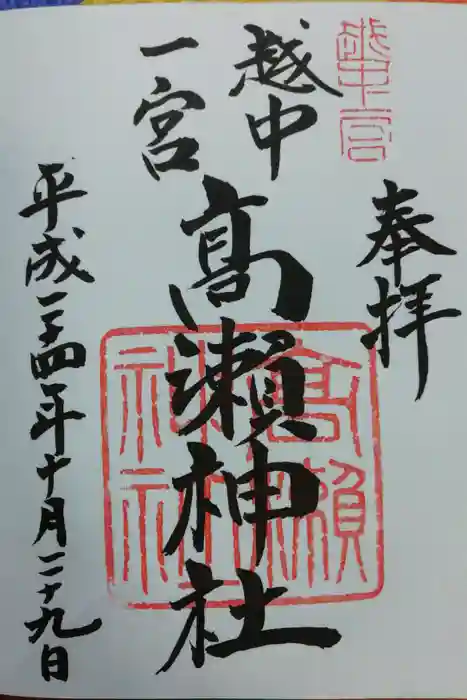 奉拝
越中一宮
越中
一宮
高瀬神社
髙瀬神社
平成二十四年十月二十九日